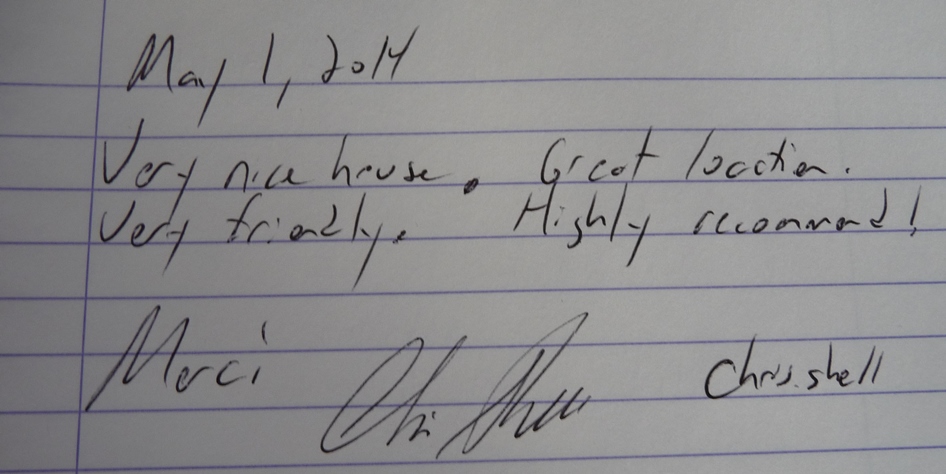 May 1, 2014
Very nice house. Great location.
Very friendly. Highly recommend!
Merci Chris shell